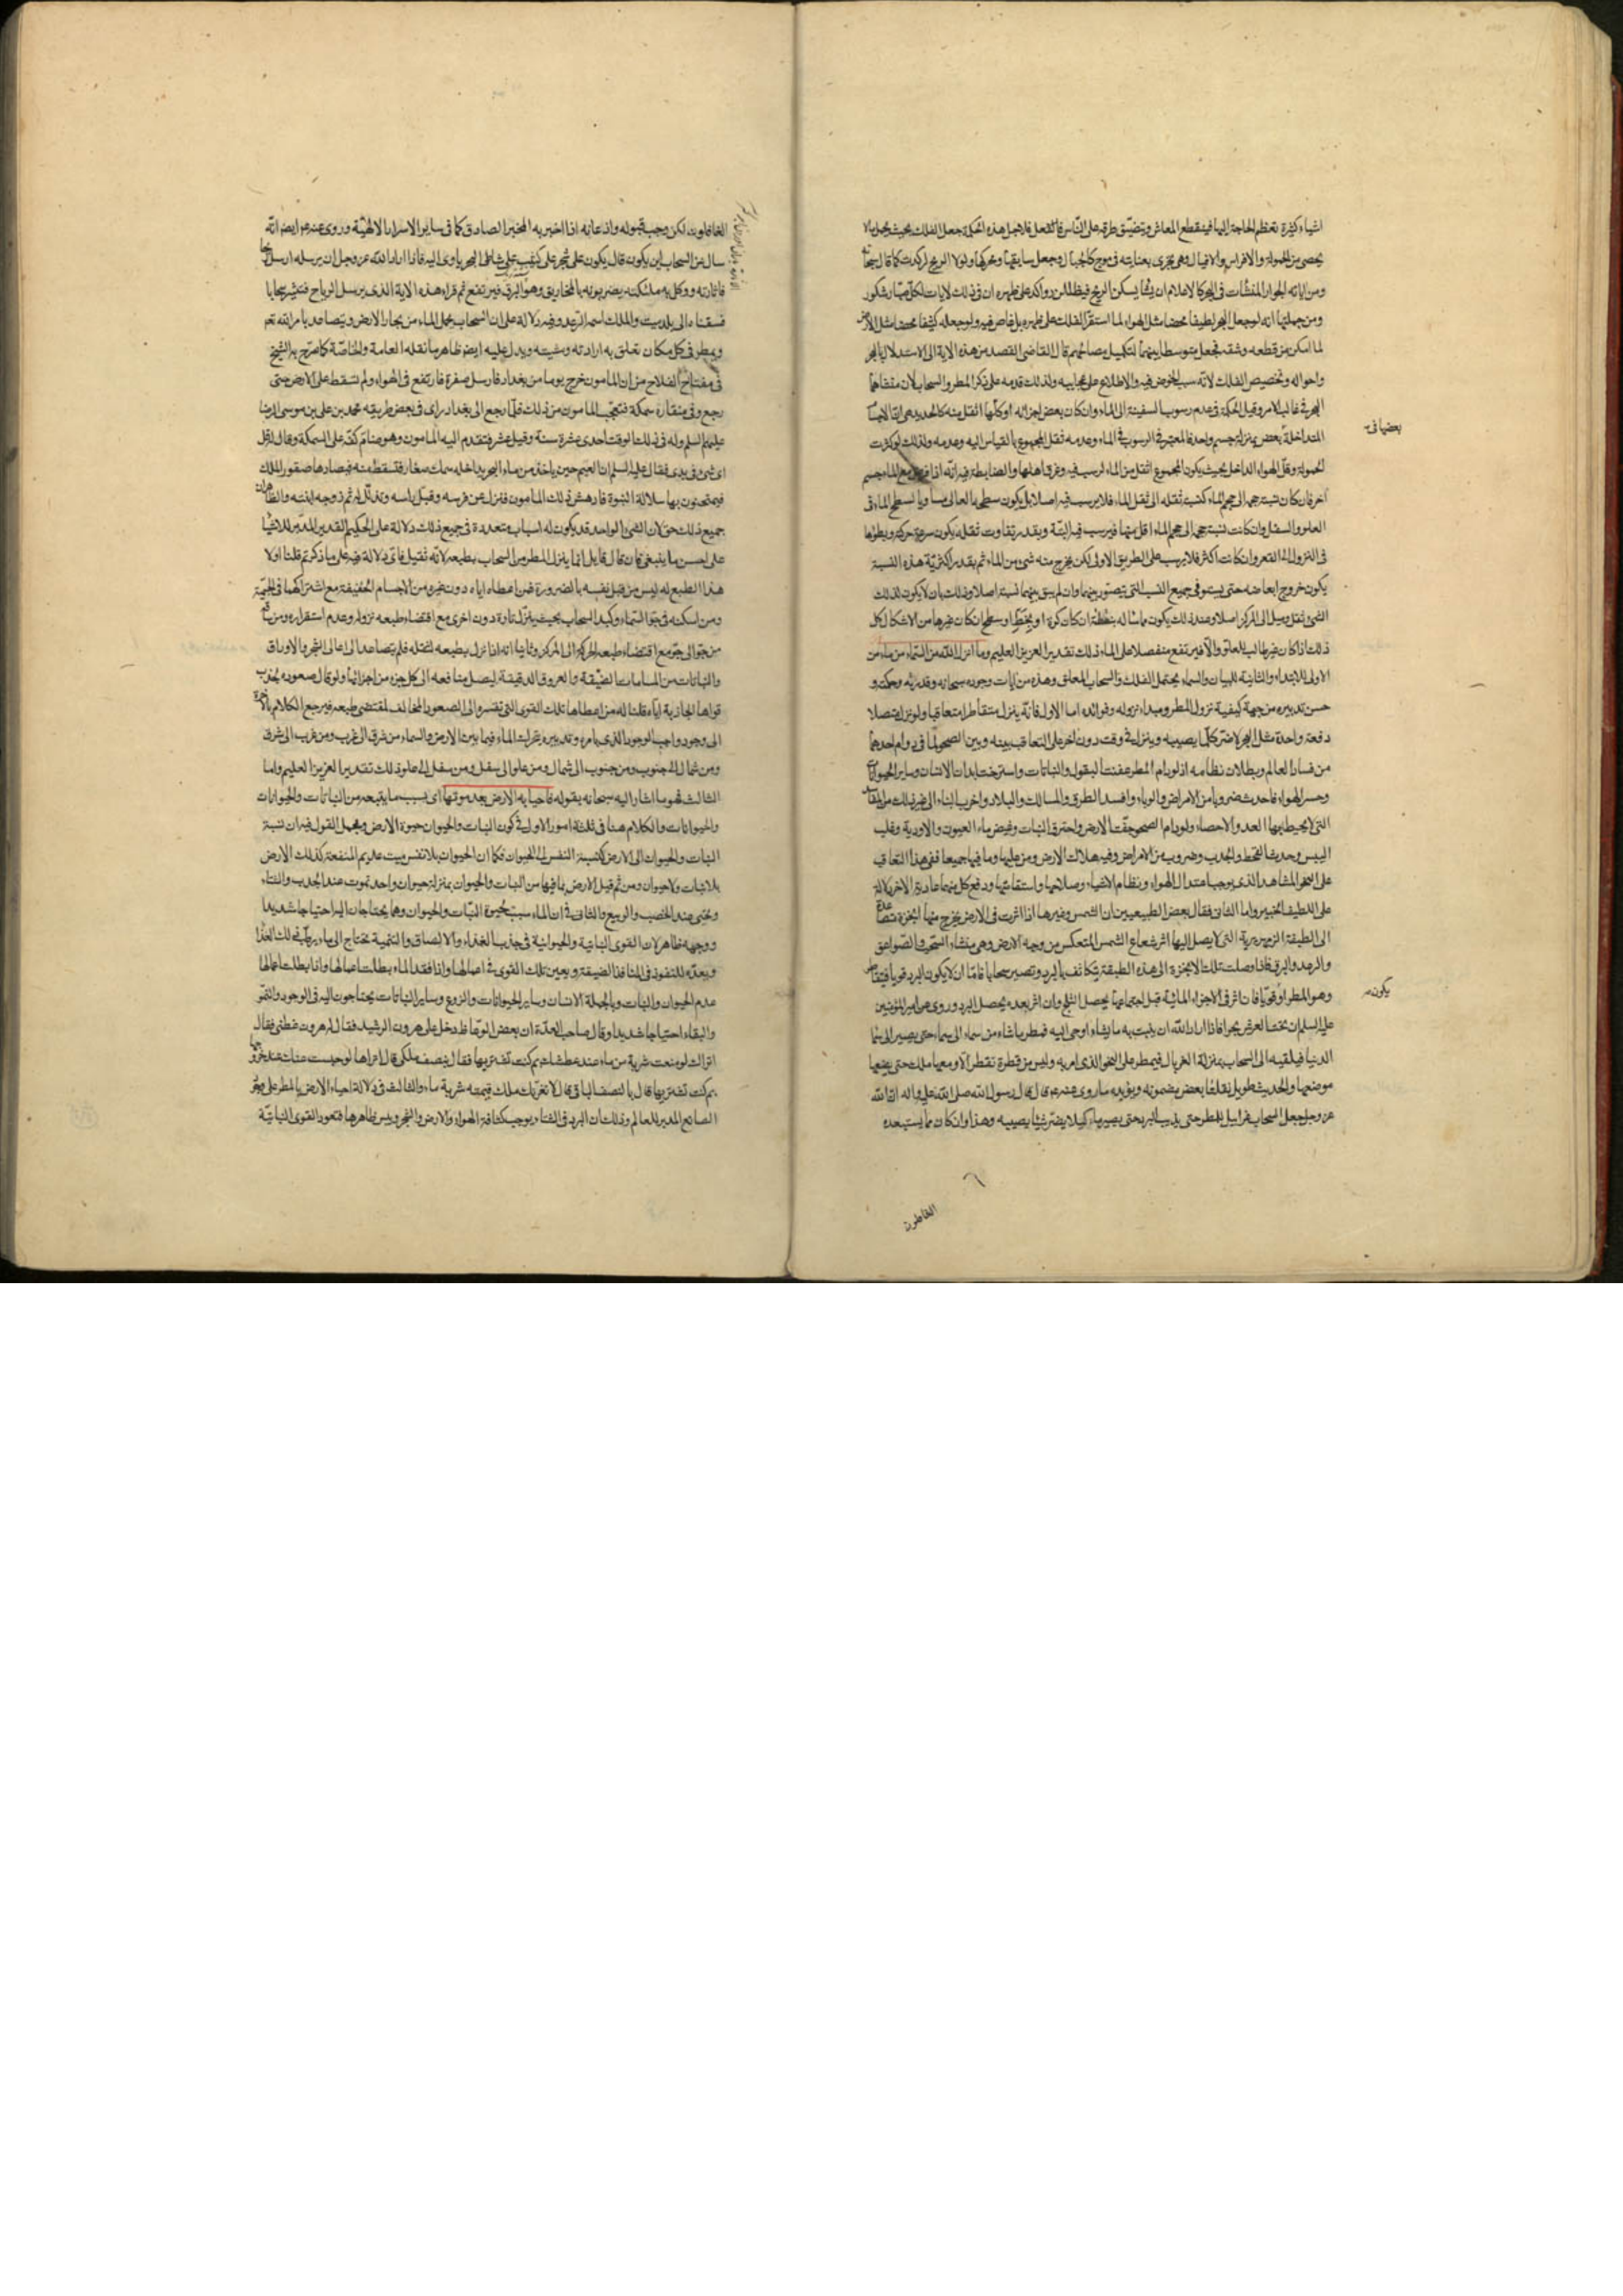 اشياء كثيرة تعظم الحاجة اليها فينقطع المعاش وتضيق طرقه على الناس فلاجل هذه الحكمة جعل الفلك بحيث يحمل ما لا
يحصى من الحمولة والافراس والافيال وهى تجرى بعنايته فى موج كالجبال وجعل سايقها ومحركها ولولا الريح لركدت كما قال سبحانه
ومن اياته الجوار المنشآت فى البحر كالاعلام ان يشأ يسكن الريح فيظللن رواكد على ظهره ان فى ذلك لايات لكل صبار شكور
ومن جملتها انه لو جعل البحر لطيفا محضا مثل الهواء لما استقر الفلك على ظهره بل غاص فيه ولو جعله كثيفا محضا مثل الارض
لما امكن من قطعه وشقه فجعل متوسطا بينهما لتكميل مصالحهم قال القاضى القصد من هذه الاية الى الاستدلال بالبحر
واحواله وتخصيص الفلك لانه سبب الخوض فيه والاطلاع على عجايبه ولذلك قدمه على ذكر المطر والسحاب لان منشأهما
البحر فى غالب الامر وقيل الحكمة فى عدم رسوب السفينة الى الماء وان كان بعض اجزائه او كلها اثقل منه كالحديد هى ان الاجسام
المتداخلة بعض بمنزلة جسم واحد فالمعتبر فى الرسوب فى الماء وعدمه ثقل المجموع بالقياس اليه وعدمه ولذلك لو كثرت
بعضها فى
الحمولة وقل الهواء الداخل بحيث يكون المجموع اثقل من الماء لرسب فيه وغرق اهلها والضابطة فيه انه اذا فرض مع الماء جسم
آخر فان كان نسبة حجمه الى حجم الماء كنسبة ثقله الى ثقل الماء فلا يرسب فيه اصلا بل يكون سطحه العالى مساويا لسطح الماء فى
العلو والسفل وان كانت نسبة حجمه الى حجم الماء اقل منها فيرسب فيه البتة وبقدر تفاوت ثقله يكون سرعة حركته وبطؤها
فى النزول الى القعر وان كانت اكثر فلا يرسب على الطريق الاولى لكن يخرج منه شئ من الماء ثم بقدر اكثرية هذه النسبة
يكون خروج ابعاضه حتى يستوفى جميع النسب التى يتصور بينهما وان لم يبق بينهما نسبة اصلا وذلك بان لا يكون لذلك
الشئ ثقل وميل الى المركز اصلا وعند ذلك يكون مماسا له بنقطة ان كان كرة او بخط او سطح ان كان غيرها من الاشكال كل
ذلك اذا كان غير طالب للعلو والا فيرتفع منفصلا على الماء ذلك تقدير العزيز العليم وما انزل الله من السماء من ماء من
الاولى للابتداء والثانية للبيان والسماء يحتمل الفلك والسحاب المعلق وهذه من ايات وجوده سبحانه وقدرته وحكمته و
حسن تدبيره من جهة كيفية نزول المطر ومبداء نزوله وفوائده اما الاول فانه ينزل متقاطرا متعاقبا ولو نزل متصلا
دفعة واحدة مثل البحر لاضر كلما يصيبه وينزل فى وقت دون اخر على التعاقب بينه وبين الصحو لما فى دوام احدهما
من فساد العالم وبطلان نظامه اذ لو دام المطر عفنت البقول والنباتات واسترخت ابدان الانسان وساير الحيوانات
وحسر الهواء فاحدث ضروبا من الامراض والوباء وافسد الطرق والمسالك والبلاد واخرب البناء الى غير ذلك من المفاسد
التى لا يحيط بها العد والاحصاء ولو دام الصحو جفت الارض واحترق النبات وغيض ماء العيون والاودية وغلب
اليبس وحدث القحط والجدب وضروب من الامراض وفيه هلاك الارض ومن عليها وما فيها جميعا ففى هذا التعاقب
على النحو المشاهد الذى يوجب اعتدال الهواء ونظام الاشياء وصلاحها واستقامتها ودفع كل منهما عادية الاخر دلالة
على اللطيف الخبير واما الثانى فقال بعض الطبيعيين ان الشمس وغيرها اذا اثرت فى الارض يخرج منها ابخرة متصاعدة
الى الطبقة الزمهريرية التى لا يصل اليها اثر شعاع الشمس المنعكس من وجه الارض وهى منشاء السحب والصواعق
والرعد والبرق فاذا وصلت تلك الابخرة الى هذه الطبقة تتكاثف بالبرد وتصير سحابا فاما ان لا يكون البرد قويا فيتقاطر
وهو المطر او قويا فان اثر فى الاجزاء المائية قبل اجتماعها يحصل الثلج وان اثر بعده يحصل البرد وروى عن امير المؤمنين
يكون
عليه السلام ان تحت العرش بحرا فاذا اراد الله ان ينبت به ما يشاء اوحى اليه فمطر ما شاء من سماء الى سماء حتى يصير الى سماء
الدنيا فيلقيه الى السحاب بمنزلة الغربال فيمطر على النحو الذى امر به وليس من قطرة تقطر الا ومعها ملك حتى يضعها
موضعها والحديث طويل نقلنا بعض مضمونه ويؤيده ما روى عنه عم قال قال رسول الله صلى الله عليه واله ان الله
عز وجل جعل السحاب غرابيل للمطر حتى يذيب البرد حتى يصير ماء كيلا يضر شيئا يصيبه وهذا وان كان مما يستبعده
الغافلون لكن وجب قبوله واذعانه اذا اخبر به المخبر الصادق كما فى ساير الاسرار الالهية وروى عنه عم ايضا انه
سال عن السحاب اين يكون قال يكون على شجر على كثيب على شاطئ البحر ياوى اليه فاذا اراد الله عز وجل ان يرسله ارسل ريحا
فاثارته ووكل به ملئكته يضربونه بالمخاريق وهو البرق فيرتفع ثم قراء هذه الاية الذى يرسل الرياح فتثير سحابا
فسقناه الى بلد ميت والملك اسمه الرعد وفيه دلالة على ان السحاب يحمل الماء من بحار الارض ويتصاعد بامر الله تعم
ويمطر فى كل مكان تعلق به ارادته ومشيته ويدل عليه ايضا ظاهر ما نقله العامة والخاصة كما صرح به الشيخ
فى مفتاح الفلاح من ان المامون خرج يوما من بغداد فارسل صقره فارتفع فى الهواء ولم تسقط على الارض حتى
رجع وفى منقاره سمكة فتعجب المامون من ذلك فلما رجع الى بغداد راى فى بعض طريقه محمد بن على بن موسى الرضا
عليهم السلم وله فى ذلك الوقت احدى عشرة سنة وقيل عشر فتقدم اليه المامون وهو ضام كفه على السمكة وقال له قل
اى شئ فى يدى فقال عليه السلم ان الغيم حين ياخذ من ماء البحر يداخله سمك صغار فتسقط منه فيصادها صقور الملك
فيمتحنون بها سلالة النبوة فادهش ذلك المامون فنزل عن فرسه وقبل راسه وتذلل له ثم زوجه ابنته والظاهر ان
جميع ذلك حق لان الشئ الواحد قد يكون له اسباب متعددة فى جميع ذلك دلالة على الحكيم القدير المدبر للاشياء
على احسن ما ينبغى فان قال قايل انما ينزل المطر من السحاب بطبعه لانه ثقيل فاى دلالة فيه على ما ذكرتم قلنا اولا
هذا الطبع له ليس من قبل نفسه بالضرورة فمن اعطاه اياه دون غيره من الاجسام الخفيفة مع اشتراكهما فى الجسمية
ومن اسكنه فى جو السماء وكبد السحاب بحيث ينزل تارة دون اخرى مع اقتضاء طبعه نزوله وعدم استقراره ومن ساقه
من جو الى جو مع اقتضاء طبعه الحركة الى المركز وثانيا انه اذا نزل بطبعه لثقله فلم يتصاعد الى اعالى الشجر والاوراق
والنباتات من المسامات الضيقة والعروق الدقيقة ليصل منافعه الى كل جزء من اجزائها ولو قال صعوده بجذب
قواها الجاذبة اياه قلنا له من اعطاها تلك القوى التى تقسره الى الصعود المخالف لمقتضى طبعه فيرجع الكلام بالاخرة
الى وجود واجب الوجود الذى بامره وتدبيره يتحرك الماء فيما بين الارض والسماء من شرق الى غرب ومن غرب الى شرق
ومن شمال الى جنوب ومن جنوب الى شمال ومن علو الى سفل ومن سفل الى علو ذلك تقدير العزيز العليم واما
الثالث فهو ما اشار اليه سبحانه بقوله فاحيا به الارض بعد موتها اى بسبب ما ينبعه من النباتات والحيوانات
والحيوانات والكلام هنا فى ثلثة امور الاول فى كون النبات والحيوان حيوة الارض ومجمل القول فيه ان نسبة
النبات والحيوان الى الارض كنسبة النفس الى الحيوان فكما ان الحيوان بلا نفس ميت عديم المنفعة كذلك الارض
بلا نبات ولا حيوان ومن ثم قيل الارض بما فيها من النبات والحيوان بمنزلة حيوان واحد تموت عند الجدب والشتاء
وتحيى عند الخصب والربيع والثانى فى ان الماء سبب لحيوة النبات والحيوان وهما يحتاجان اليه احتياجا شديدا
ووجهه ظاهر لان القوى النباتية والحيوانية فى جذب الغذاء والالصاق والتنمية تحتاج الى ماء يرطب ذلك الغذاء
ويعده للنفوذ فى المنافذ الضيقة ويعين تلك القوى فى اعمالها واذا فقد الماء بطلت اعمالها واذا بطلت اعمالها
عدم الحيوان والنبات وبالجملة الانسان وساير الحيوانات والزرع وساير النباتات يحتاجون اليه فى الوجود والنمو
والبقاء احتياجا شديدا وقال صاحب العدة ان بعض الوعاظ دخل على هرون الرشيد فقال له هرون عظنى فقال
اتراك لو منعت شربة من ماء عند عطشك بم كنت تشتريها فقال بنصف ملكى قال اتراها لو حبست عنك عند خروجها
بم كنت تشتريها قال بالنصف الباقى قال لا يغرنك ملك قيمته شربة ماء والثالث فى دلالة احياء الارض بالمطر على وجود
الصانع المدبر للعالم وذلك ان البرد فى الشتاء يوجب كثافة الهواء والارض والشجر ويبس ظاهرها فتعود القوى النباتية